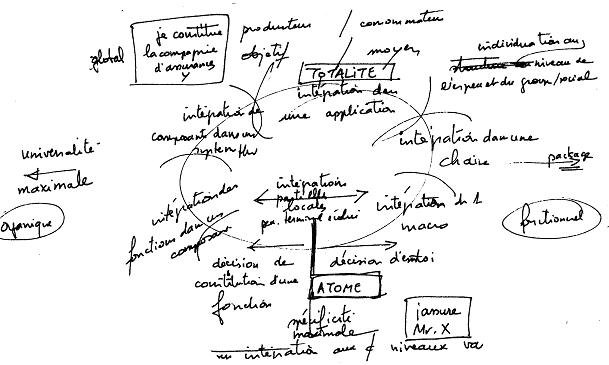 global
je constitue
la compagnie
d'assurances
Y
producteur / consommateur
objectif
moyen
TOTALITE
intégration dans
une application
individuation au
structure niveau de
l'expert du groupe/social
intégration de
composants dans un
système
intégration dans une
chaîne
package
universalité
maximale
organique
intégration des
fonctions dans un
composant
intégration
partielle
locale
intégration ds 1
macro
fonctionnel
décision de
constitution d'une
fonction
décision d'emploi
ATOME
spécificité
maximale
j'assure
Mr. X
intégration aux niveaux